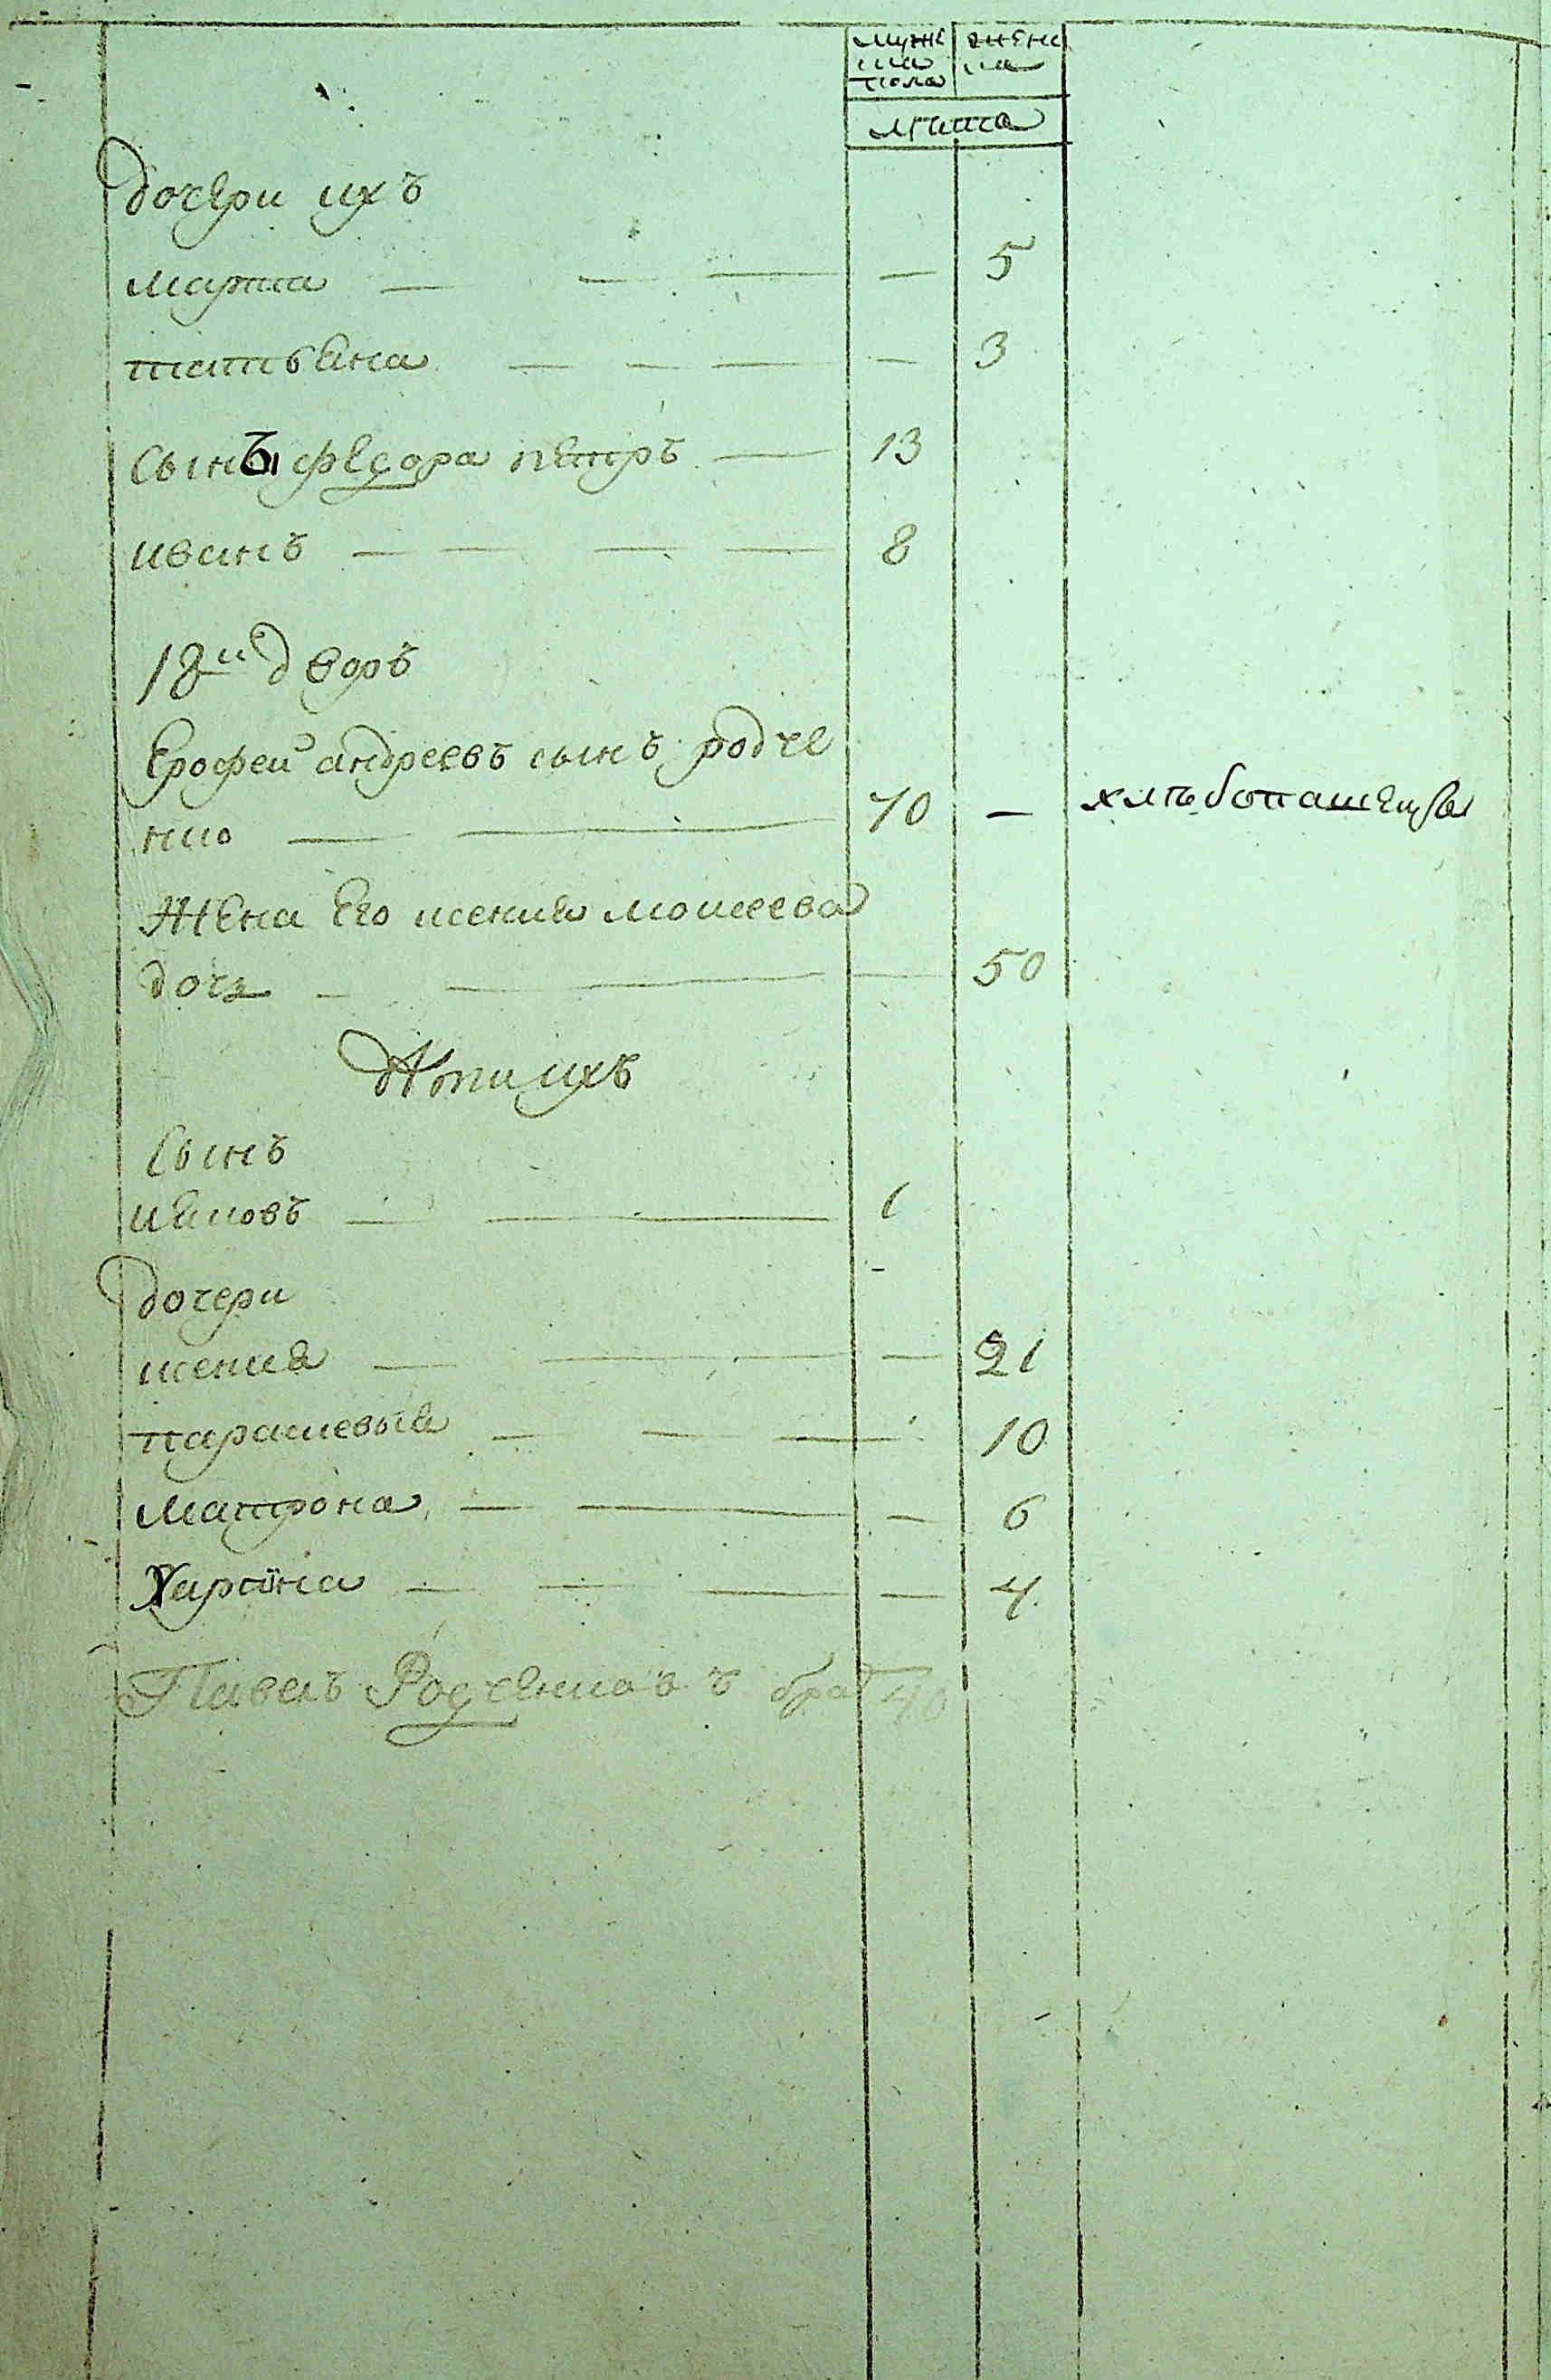 мужс жени
ка ка
пола
лѣта
дочери ихъ
марθа — — — — 5
татьяна — — — — 3
Сыны федора петръ — 13
иванъ — — — — 8
18й дворъ
Ерофей андреевъ сынъ родче
нко — — 70 — хлѣбопашецы
Жена Его ксения моисеева
дочь — — — 50
Дѣти ихъ
Сынъ
иаковъ — — 1
дочери
ксения — — — 21
параскевыя — — — 10
матрона — — — 6
Харина — — — — 4
Павелъ Родченковъ брат 40